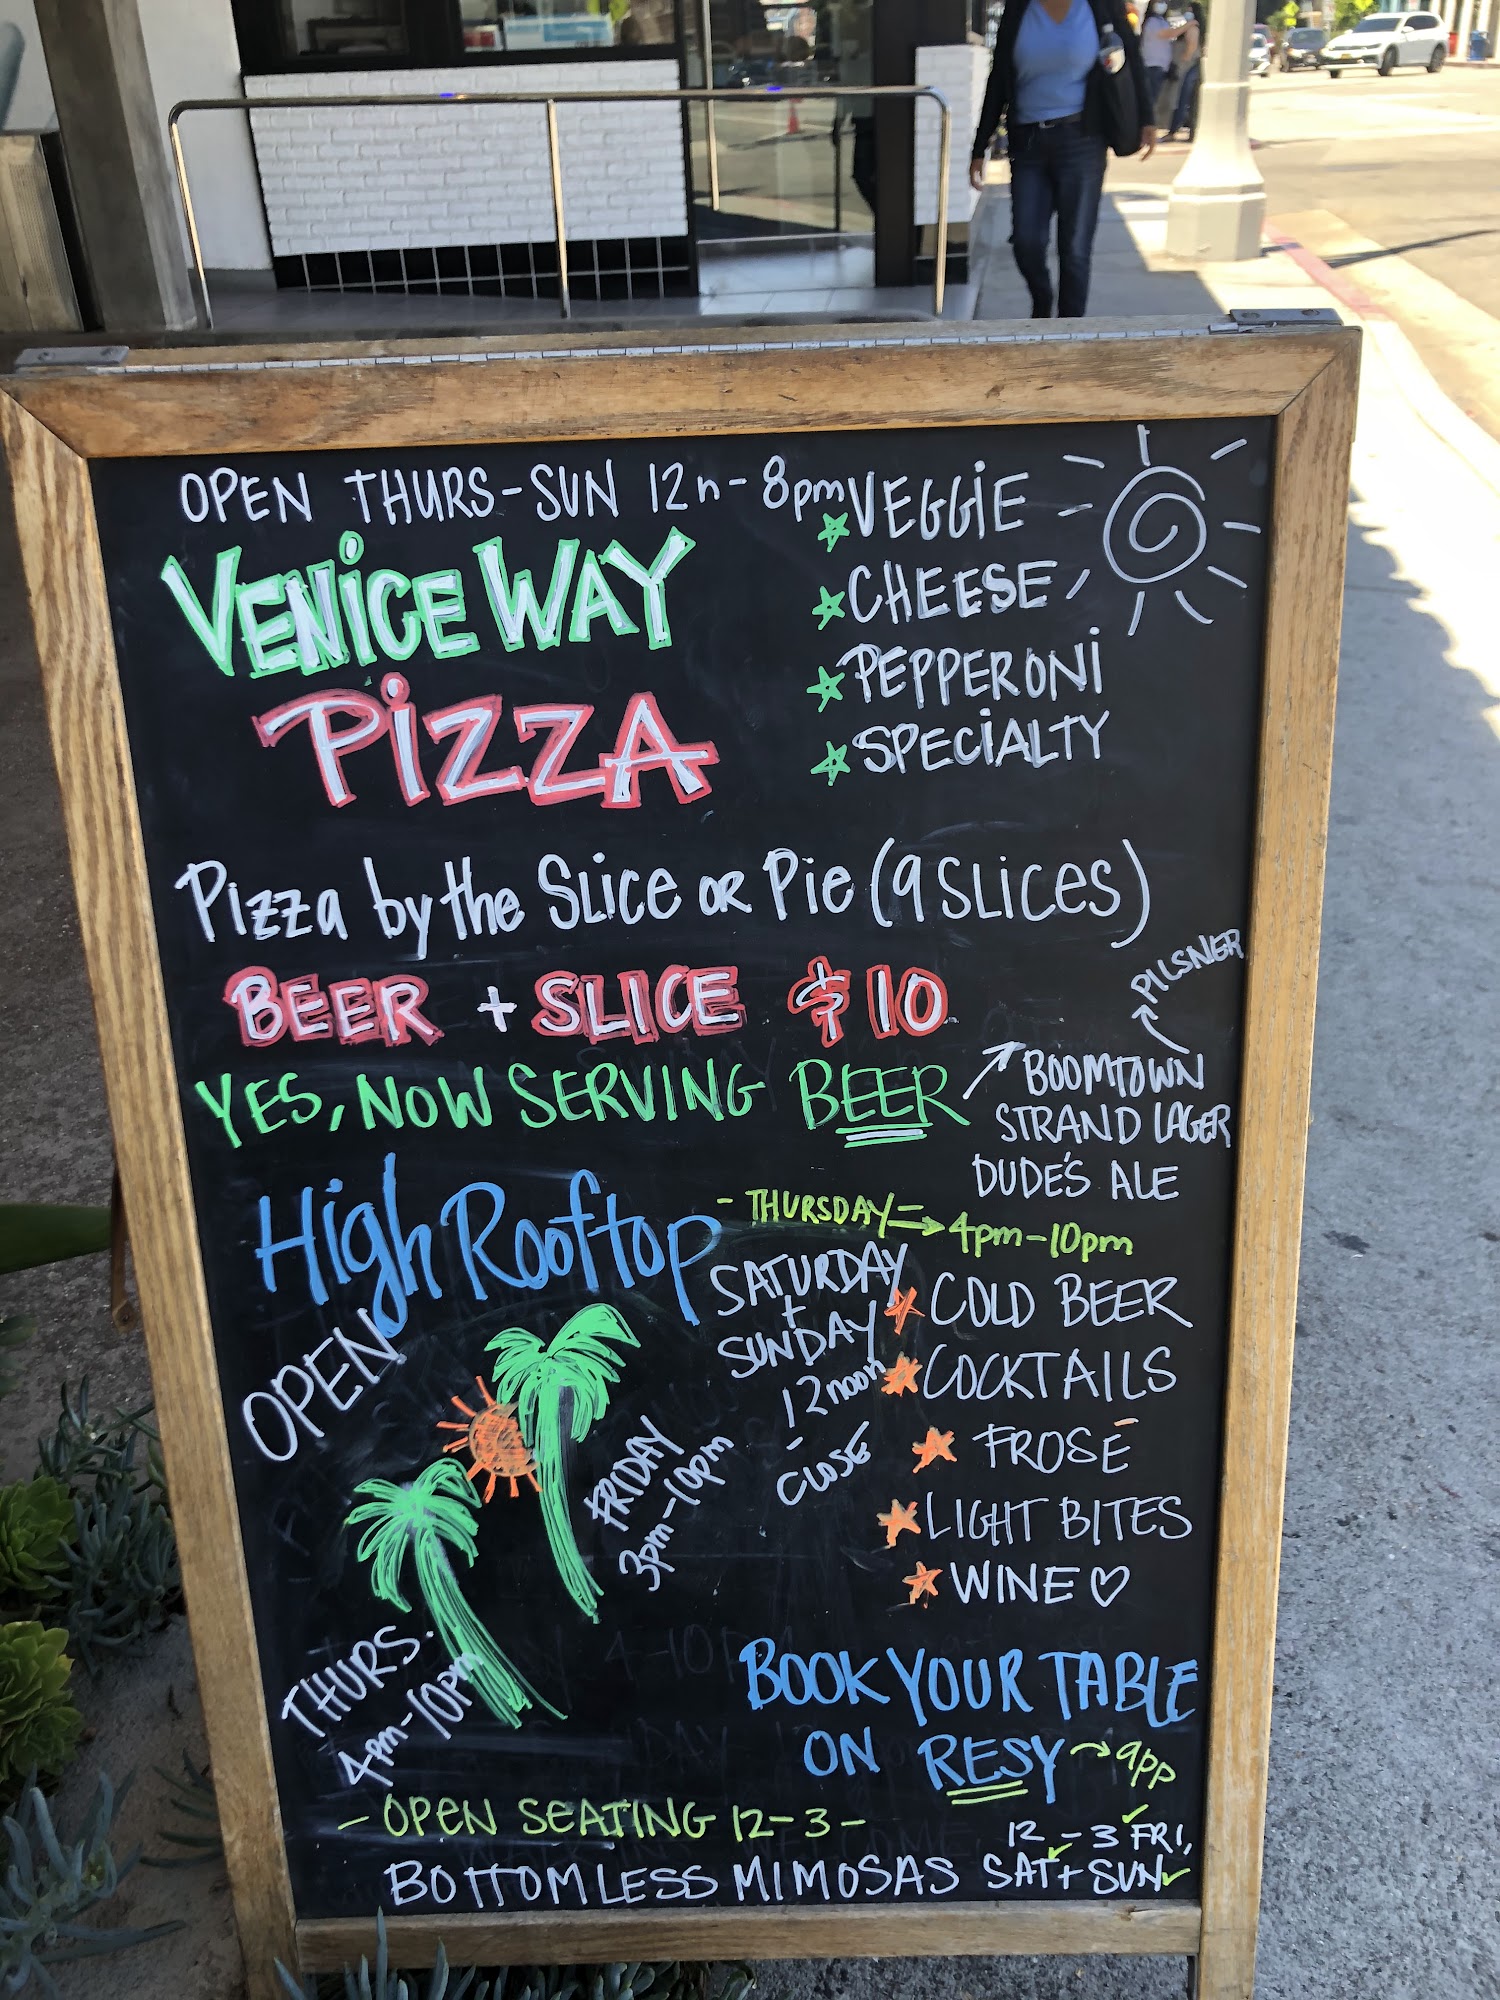 OPEN THURS-SUN 12n-8pm
VENiCE WAY
PiZZA
★VEGGiE
★CHEESE
★PEPPERONi
★SPECiALTY
Pizza by the Slice or Pie (9 SLiCES)
BEER + SLICE $10
YES, NOW SERVING BEER
→PILSNER
BOOMTOWN
STRAND LAGER
DUDE'S ALE
High Rooftop
- THURSDAY → 4pm-10pm
OPEN
SATURDAY
+
SUNDAY
12noon
-
CLOSE
FRIDAY
3pm-10pm
THURS.
4pm-10pm
★COLD BEER
★COCKTAILS
★FROSE
★LIGHT BITES
★WINE♡
BOOK YOUR TABLE
ON RESY → app
- OPEN SEATING 12-3 -
BOTTOMLESS MIMOSAS
12-3 ✓FRI,
SAT✓+ SUN✓